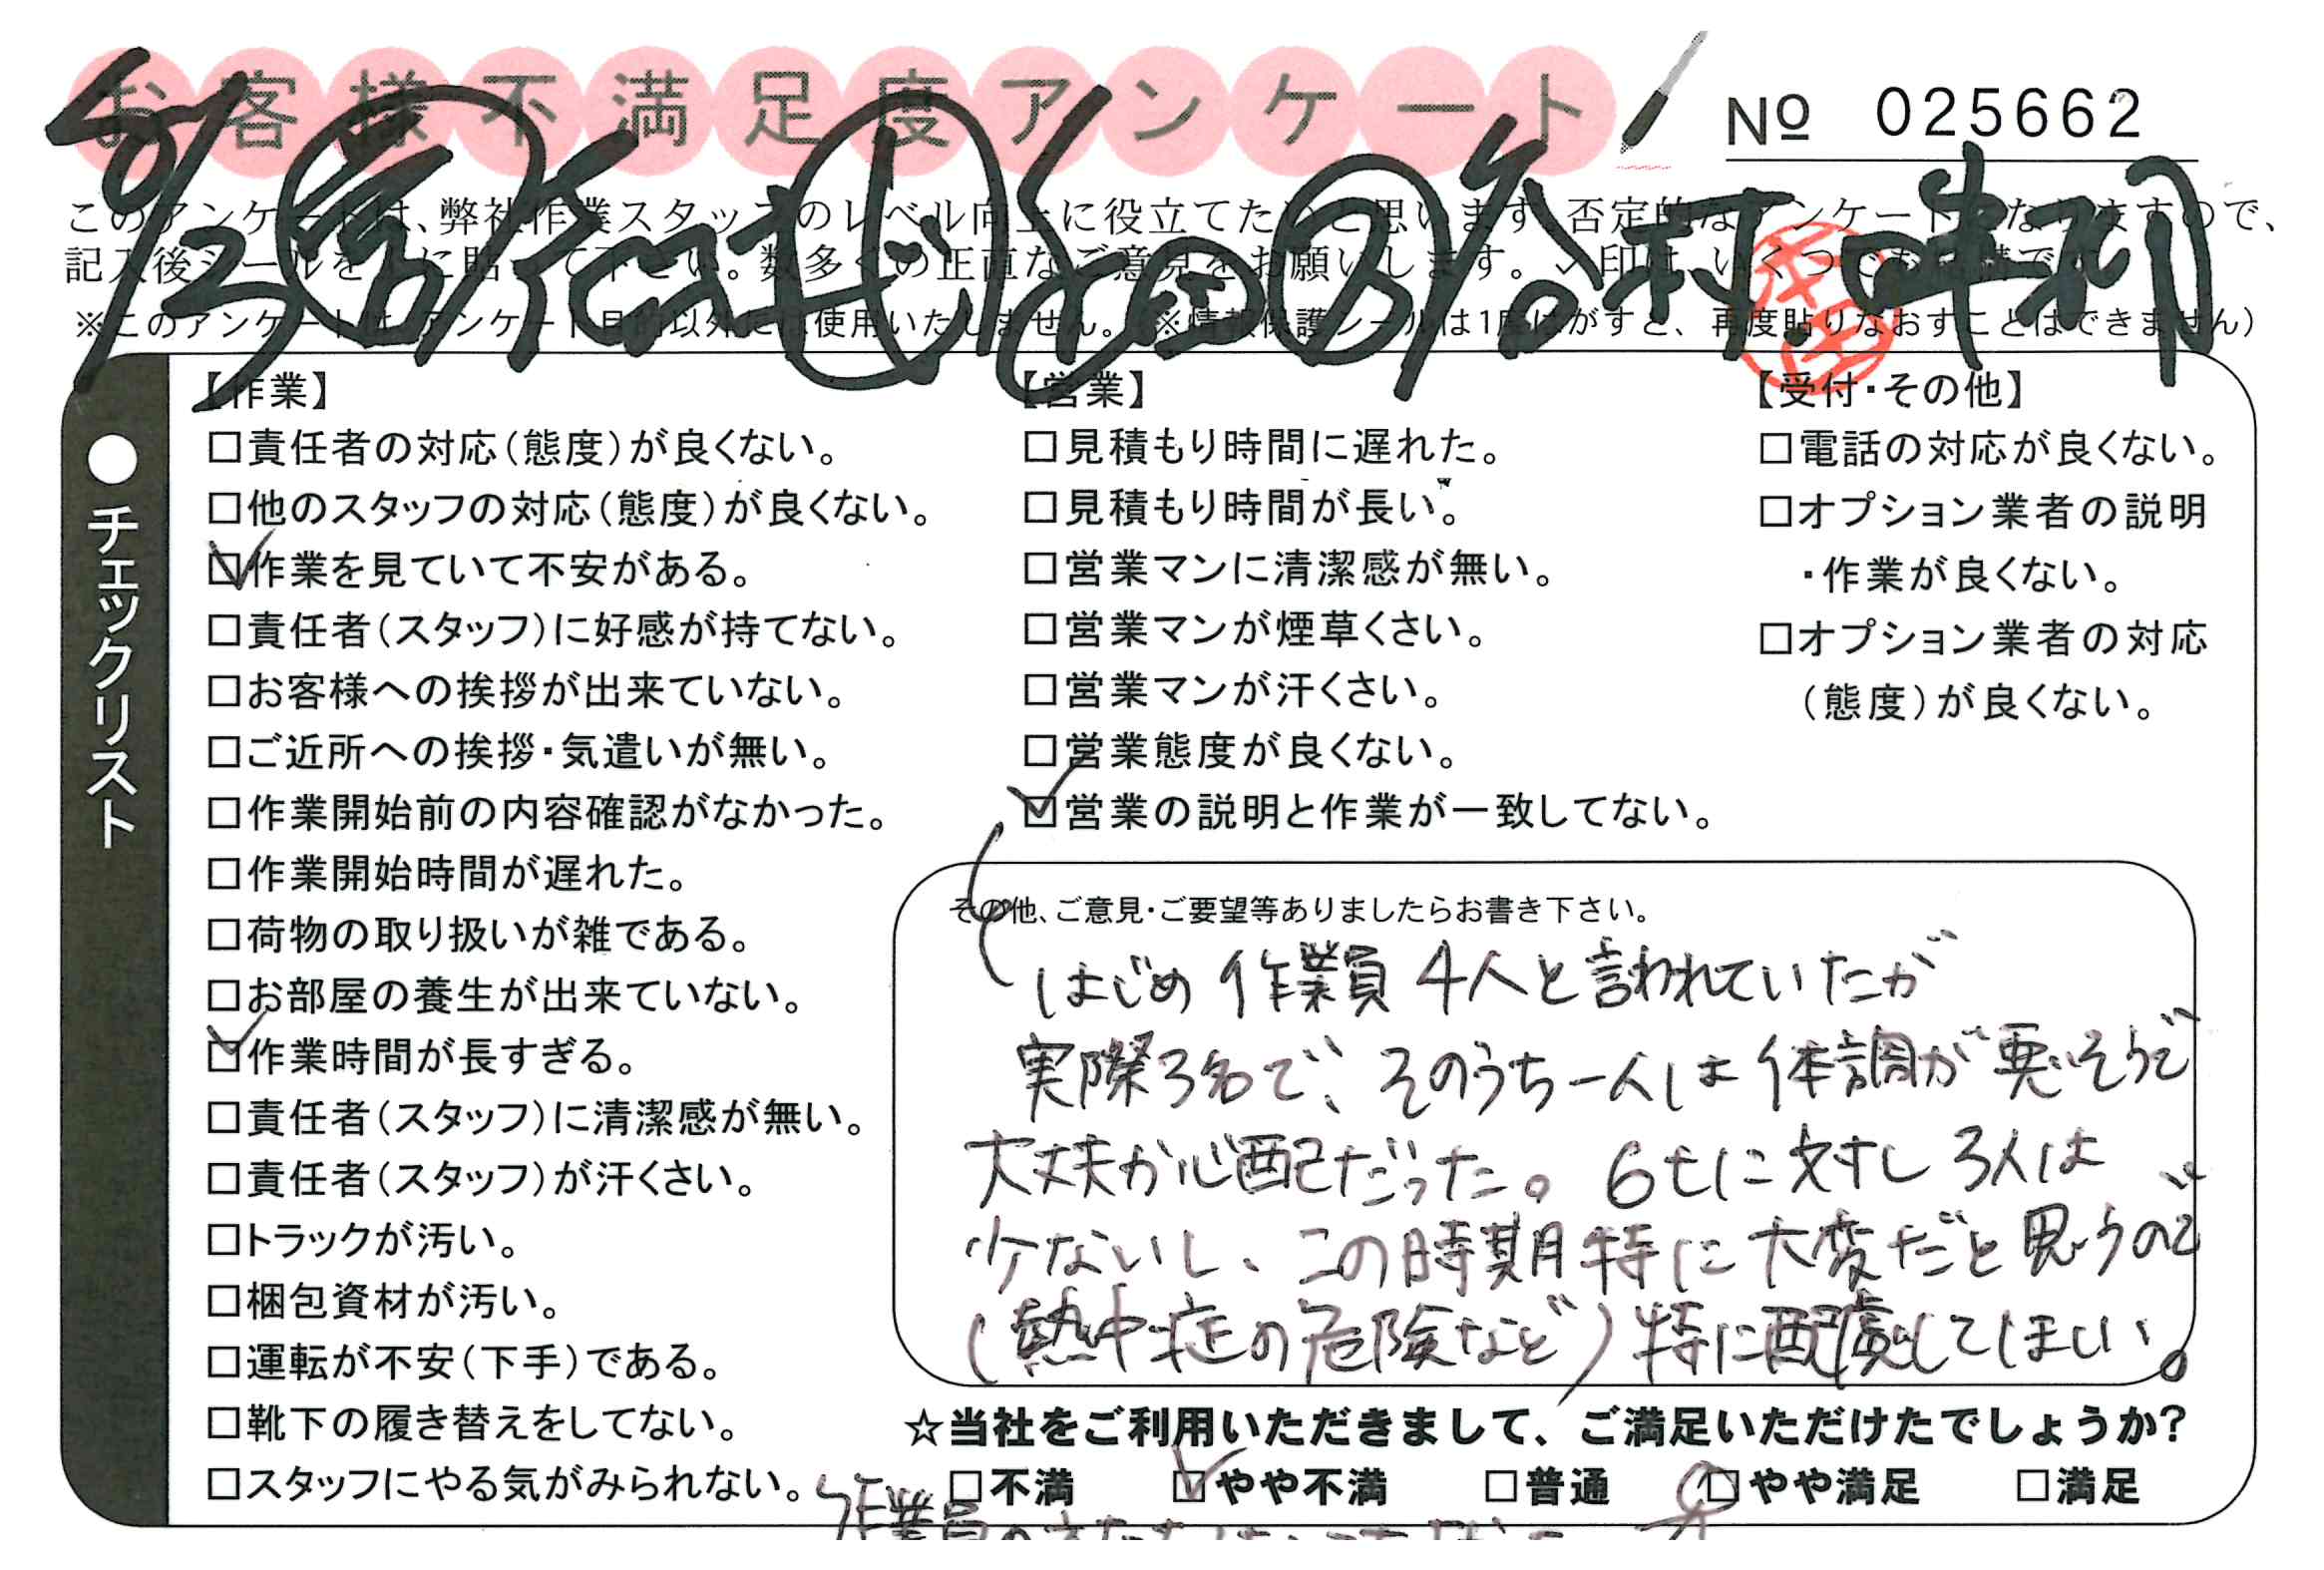 お客様不満足度アンケート
№ 025662
このアンケートは、弊社作業スタッフのレベル向上に役立てたいと思います。否定的なアンケートになりますので、
記入後シールを に貼って下さい。数多くの正直なご意見をお願いします。✓印は、いくつでも結構です
※このアンケートは、アンケート目的以外には使用いたしません。(※情報保護シールは1度はがすと、再度貼りなおすことはできません)
●チェックリスト
【作業】
□責任者の対応(態度)が良くない。
□他のスタッフの対応(態度)が良くない。
☑作業を見ていて不安がある。
□責任者(スタッフ)に好感が持てない。
□お客様への挨拶が出来ていない。
□ご近所への挨拶・気遣いが無い。
□作業開始前の内容確認がなかった。
□作業開始時間が遅れた。
□荷物の取り扱いが雑である。
□お部屋の養生が出来ていない。
☑作業時間が長すぎる。
□責任者(スタッフ)に清潔感が無い。
□責任者(スタッフ)が汗くさい。
□トラックが汚い。
□梱包資材が汚い。
□運転が不安(下手)である。
□靴下の履き替えをしてない。
□スタッフにやる気がみられない。
【営業】
□見積もり時間に遅れた。
□見積もり時間が長い。
□営業マンに清潔感が無い。
□営業マンが煙草くさい。
□営業マンが汗くさい。
□営業態度が良くない。
☑営業の説明と作業が一致してない。
【受付・その他】
□電話の対応が良くない。
□オプション業者の説明
・作業が良くない。
□オプション業者の対応
(態度)が良くない。
その他、ご意見・ご要望等ありましたらお書き下さい。
はじめ作業員4人と言われていたが
実際3名で、そのうち一人は体調が悪いそうで
大丈夫か心配だった。6tに対し3人は
少ないし、この時期特に大変だと思うので
(熱中症の危険など)特に配慮してほしい。
☆当社をご利用いただきまして、ご満足いただけたでしょうか?
□不満 ☑やや不満 □普通 □やや満足 □満足
作業員の